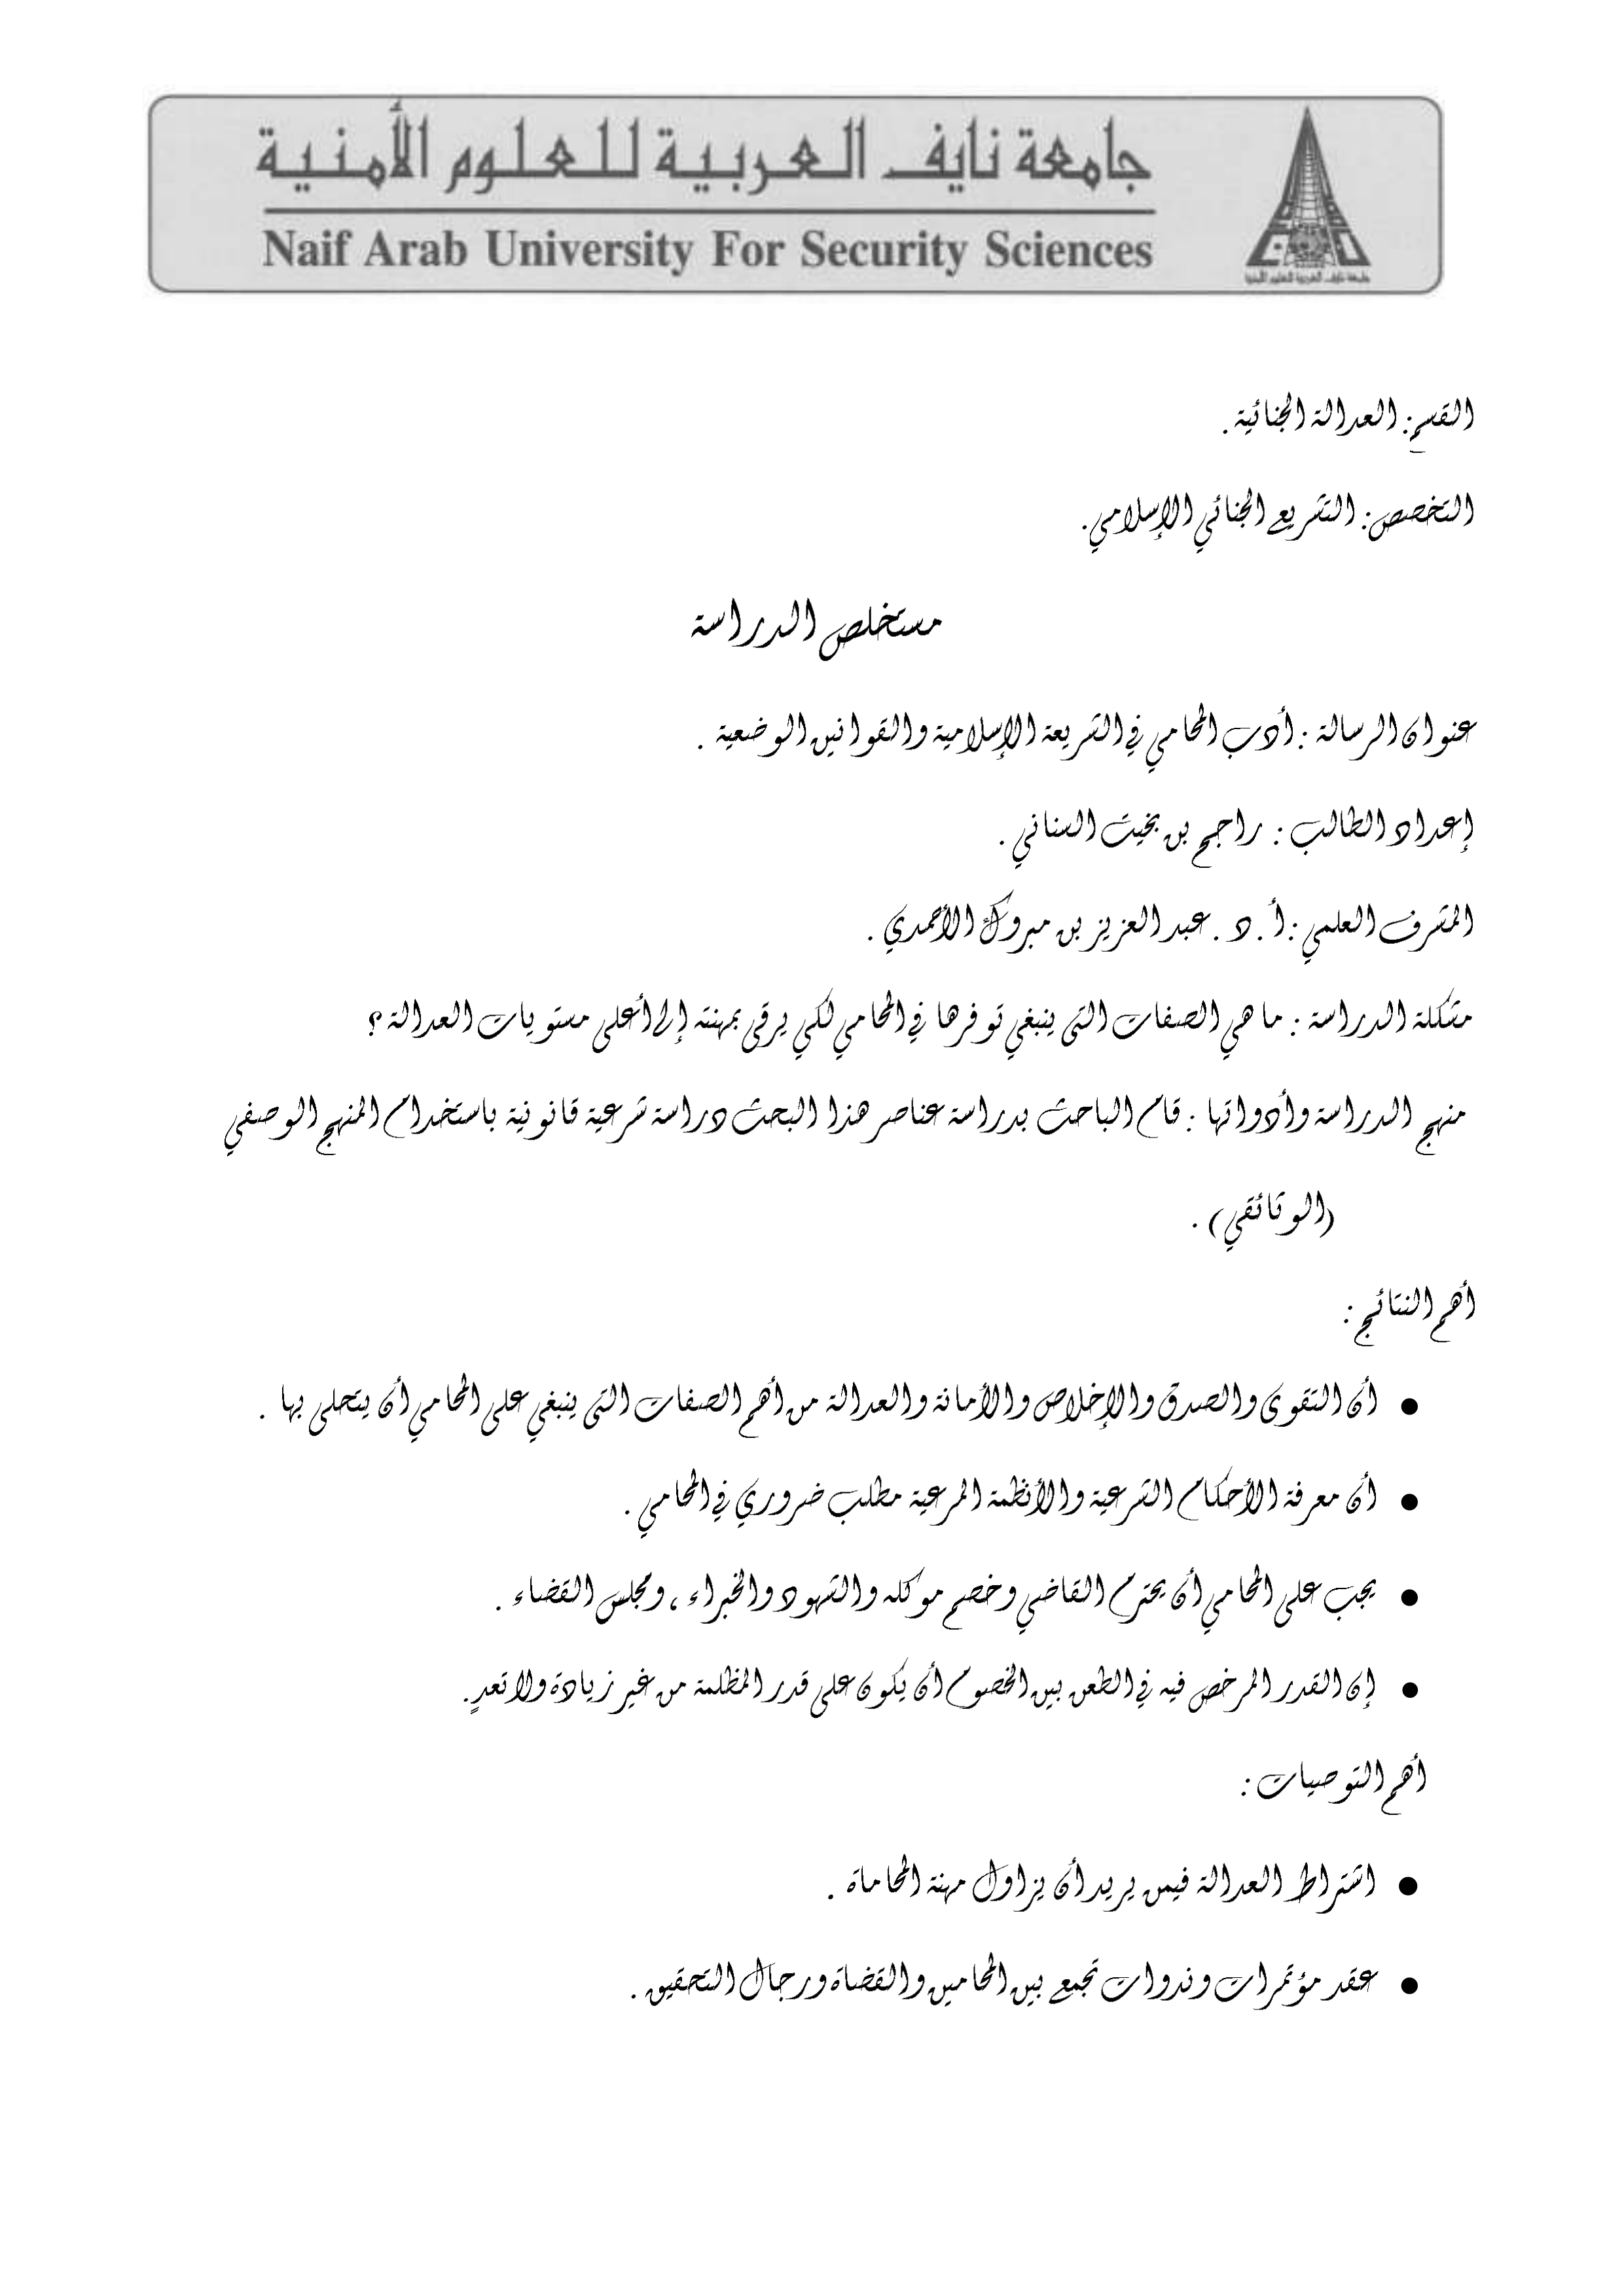 جامعة نايف العربية للعلوم الأمنية
Naif Arab University For Security Sciences
جامعة نايف العربية للعلوم الأمنية
القسم: العدالة الجنائية.
التخصص: التشريع الجنائي الإسلامي.
مستخلص الدراسة
عنوان الرسالة : أدب المحامي في الشريعة الإسلامية والقوانين الوضعية .
إعداد الطالب : راجح بن بخيت السناني .
المشرف العلمي : أ . د . عبد العزيز بن مبروك الأحمدي .
مشكلة الدراسة : ما هي الصفات التي ينبغي توفرها في المحامي لكي يرقى بمهنته إلى أعلى مستويات العدالة ؟
منهج الدراسة وأدواتها : قام الباحث بدراسة عناصر هذا البحث دراسة شرعية قانونية باستخدام المنهج الوصفي
(الوثائقي) .
أهم النتائج :
● أن التقوى والصدق والإخلاص والأمانة والعدالة من أهم الصفات التي ينبغي على المحامي أن يتحلى بها .
● أن معرفة الأحكام الشرعية والأنظمة المرعية مطلب ضروري في المحامي .
● يجب على المحامي أن يحترم القاضي وخصم موكله والشهود والخبراء ، ومجلس القضاء .
● إن القدر المرخص فيه في الطعن بين الخصوم أن يكون على قدر المظلمة من غير زيادة ولا تعدٍ.
أهم التوصيات :
● اشتراط العدالة فيمن يريد أن يزاول مهنة المحاماة .
● عقد مؤتمرات وندوات تجمع بين المحامين والقضاة ورجال التحقيق .